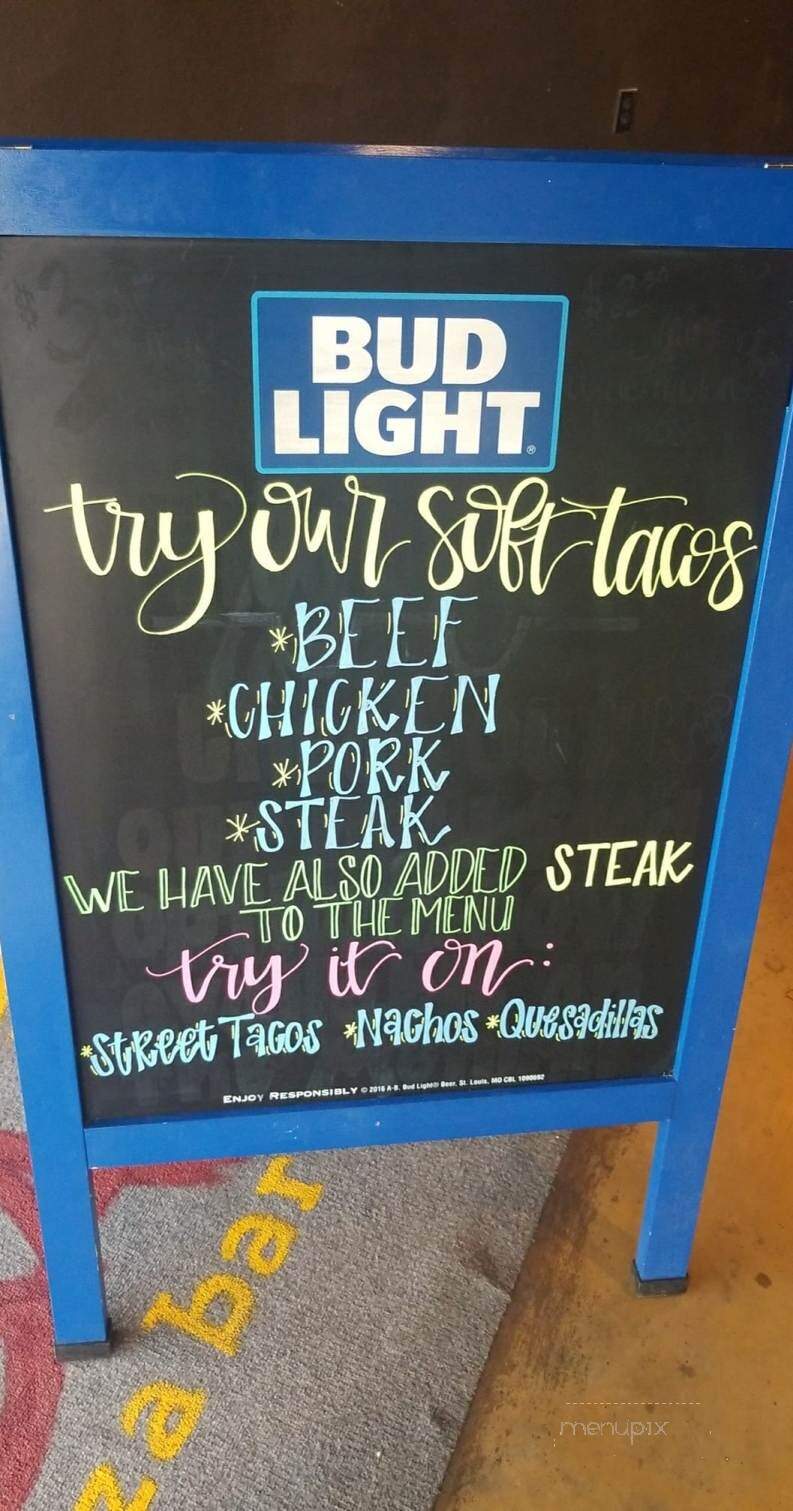 BUD
LIGHT®
try our soft tacos
*BEEF
*CHICKEN
*PORK
*STEAK
WE HAVE ALSO ADDED STEAK
TO THE MENU
try it on:
*Street Tacos *Nachos *Quesadillas
ENJOY RESPONSIBLY © 2016 A-B, Bud Light® Beer, St. Louis, MO CBL 1090692
za bar
menupix